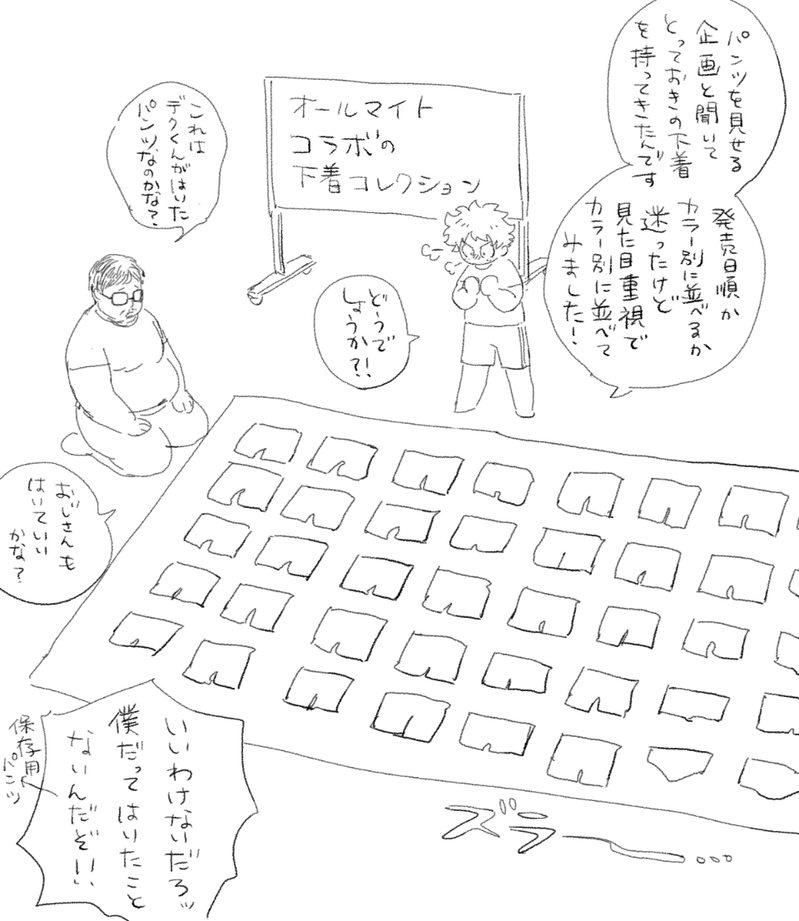 パンツを見せる
企画と聞いて
とっておきの下着
を持ってきたんです
発売日順か
カラー別に並べるか
迷ったけど
見た目重視で
カラー別に並べて
みました!
オールマイト
コラボの
下着コレクション
これは
デクくんがはいた
パンツなのかな?
どうで
しょうか?!
おじさんも
はいていい
かな?
いいわけないだろッ
僕だってはいたこと
ないんだぞ!!
保存用
パンツ
ズラー...